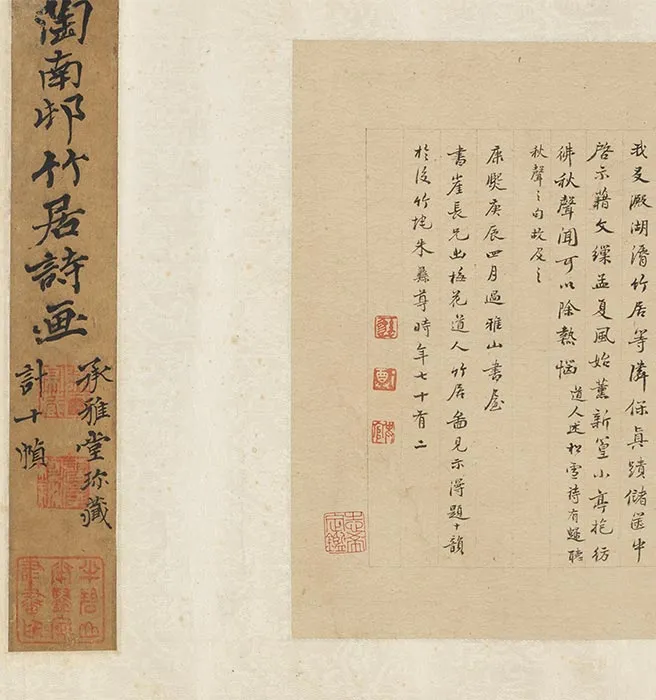 我友湖漘竹居等隣保真蹟儲篋中
啓示藉文繅孟夏風始薰新篁小亭抱彷
彿秋聲聞可以除熱惱 道人述松雪詩有聴
秋聲之句故及之
康熙庚辰四月過雅山書屋
書崖長兄出梅花道人竹居啚見示漫題十韻
於後竹垞朱彝尊時年七十有二
陶南邨竹居詩画
承雅堂珍藏
計十幀